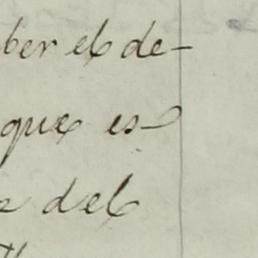 ber el de-
que es-
del